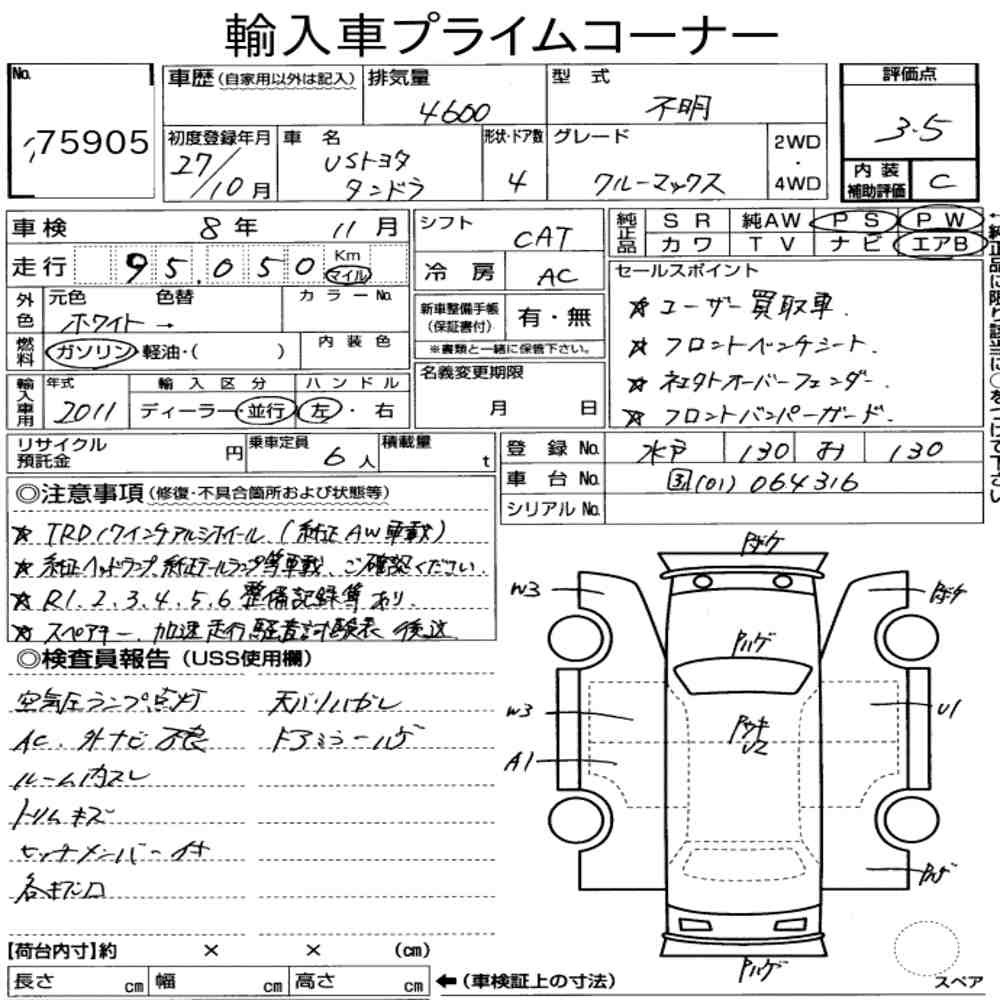 輸入車プライムコーナー
No.
75905
車歴(自家用以外は記入)
排気量
4600
型 式
不明
評価点
3.5
初度登録年月
27/10月
車 名
USトヨタ
タンドラ
形状・ドア数
4
グレード
クルーマックス
2WD
・
4WD
内装
補助評価
C
車検
8年 11月
シフト
CAT
純正品
SR 純AW PS PW
カワ TV ナビ エアB
←純正品に限り該当に○をつけて下さい
走行
95,050
Km
マイル
冷 房
AC
セールスポイント
☆ ユーザー買取車.
☆ フロントベンチシート.
☆ 社外オーバーフェンダー.
☆ フロントバンパーガード.
外色
元色 色替 カラーNo.
ホワイト→
新車整備手帳
(保証書付)
有・無
※書類と一緒に保管下さい。
燃料
ガソリン・軽油・( )
内装色
輸入車用
年式
2011
輸入区分
ディーラー・並行
ハンドル
左・右
名義変更期限
月 日
リサイクル
預託金
円
乗車定員
6人
積載量
t
登 録 No.
水戸 130 お 130
車 台 No.
国(01)064316
シリアル No.
◎注意事項(修復・不具合箇所および状態等)
☆ TRD17インチアルミホイール(純正AW車載)
☆ 純正ヘッドランプ純正テールランプ等車載、ご確認ください.
☆ R1.2.3.4.5.6整備記録簿あり.
☆ スペアキー、加速走行騒音試験表 後送
◎検査員報告(USS使用欄)
空気圧ランプ点灯
天バリハガレ
AC、外ナビ不良
ドアミラーハゲ
ルーム内スレ
トリムキズ
ヒッチメンバー付
各キズ凹
Pハゲ
W3
W3
A1
U1
Pハゲ
Pハゲ
【荷台内寸】約 × × (cm)
長さ cm 幅 cm 高さ cm
←(車検証上の寸法)
スペア